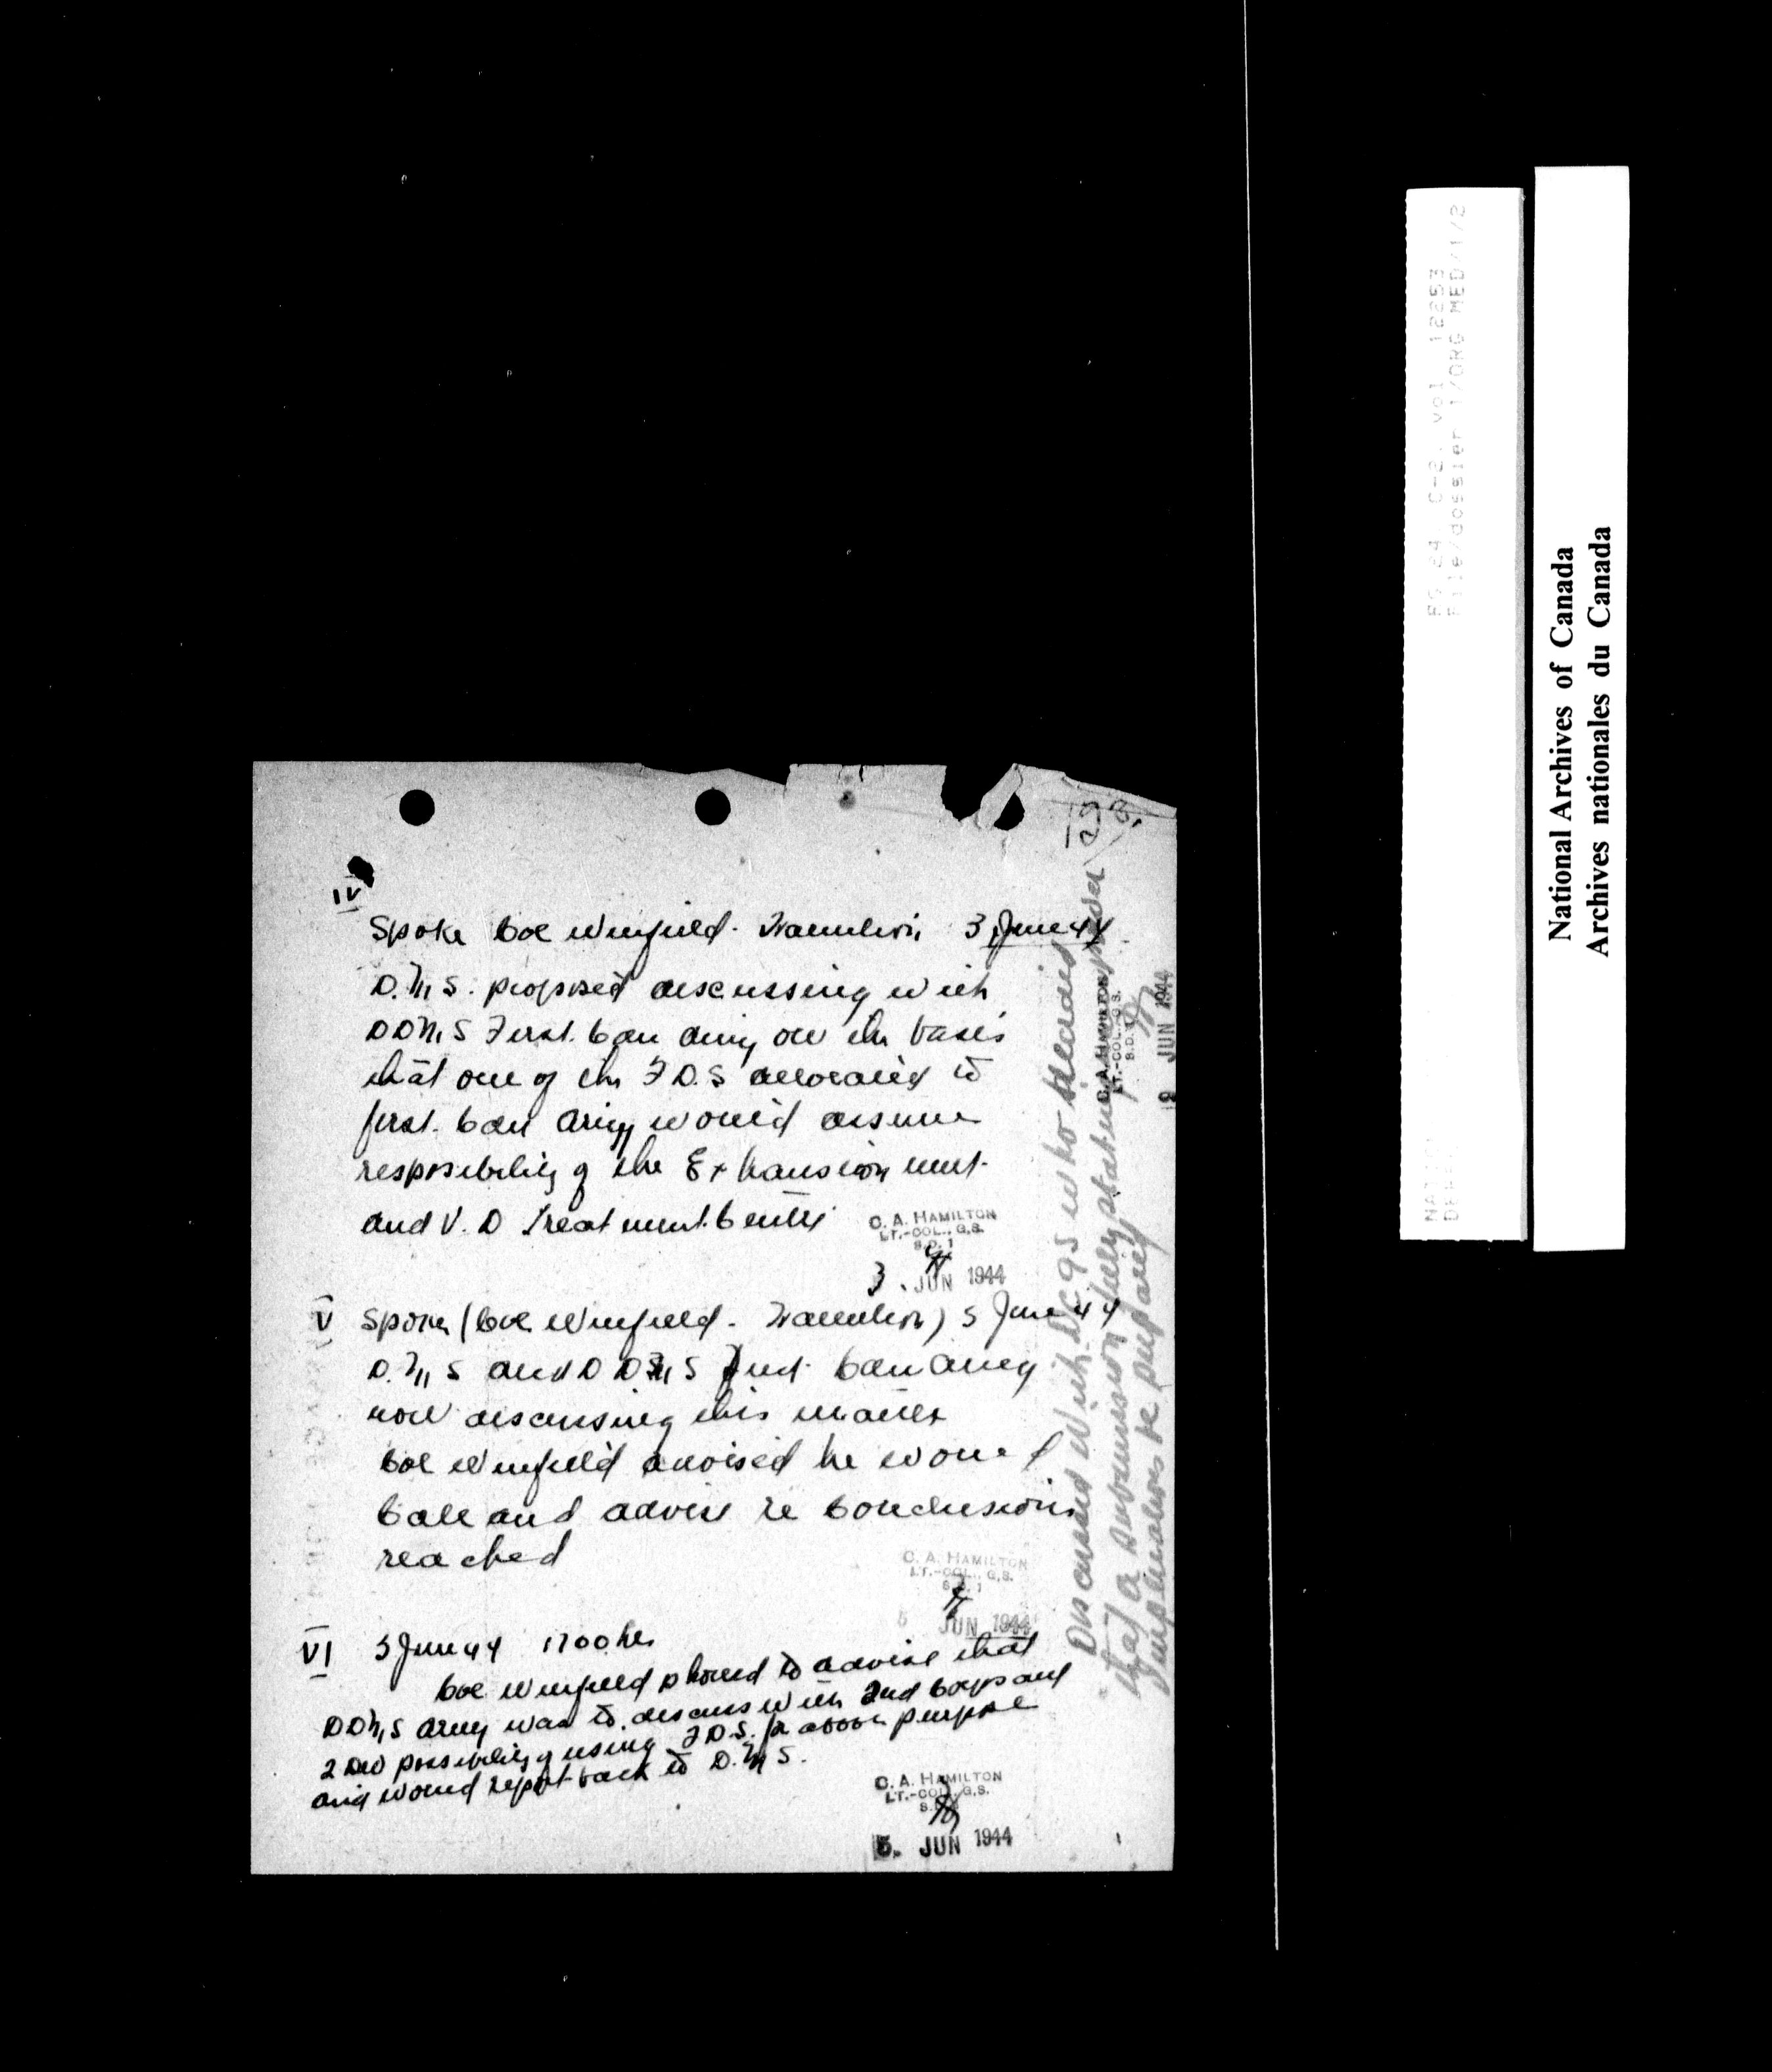 IV
Spoke Col Winfield - Hamilton 3 June 44
D.M.S. proposed discussing with
DDMS First Cdn Army on the basis
that one of the F.D.S allocated to
first Cdn Army would assume
resposibility of the Exhaustion unit
and V.D Treatment Centre
C. A. HAMILTON
LT.-COL., G.S.
S.D. 1
3. JUN 1944
V Spoke (Col Winfield - Hamilton) 5 June 44
D.M.S and DDMS First Cdn Army
now discussing this matter
Col Winfield advised he would
Call and advise re Conclusions
reached
C. A. HAMILTON
LT.-COL., G.S.
S.D. 1
5 JUN 1944
VI 5 June 44 1700 hrs
Col Winfield phoned to advise that
DDMS Army was to discuss with 2nd Corps and
2 Div possibility of using F.D.S. for above purpose
and would report back to D.M.S.
C. A. HAMILTON
LT.-COL., G.S.
S.D. 1
5. JUN 1944
Discussed with DCGS who decided
that a submission fully stating
implications be prepared
C. A. HAMILTON
LT.-COL., G.S.
S.D. 1
JUN 1944
File/dossier 1/ORG MED/1/2
National Archives of Canada
Archives nationales du Canada